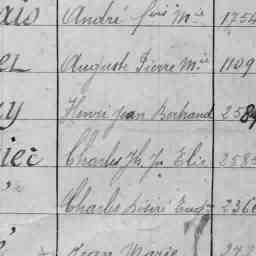 ais André fois Mie 1754
el Auguste Pierre Mie 1109
y Henri Jean Bertrand 2589
ier Charles Jh Jn Elie 2583
Charles Désiré Eug 236
Jean Marie